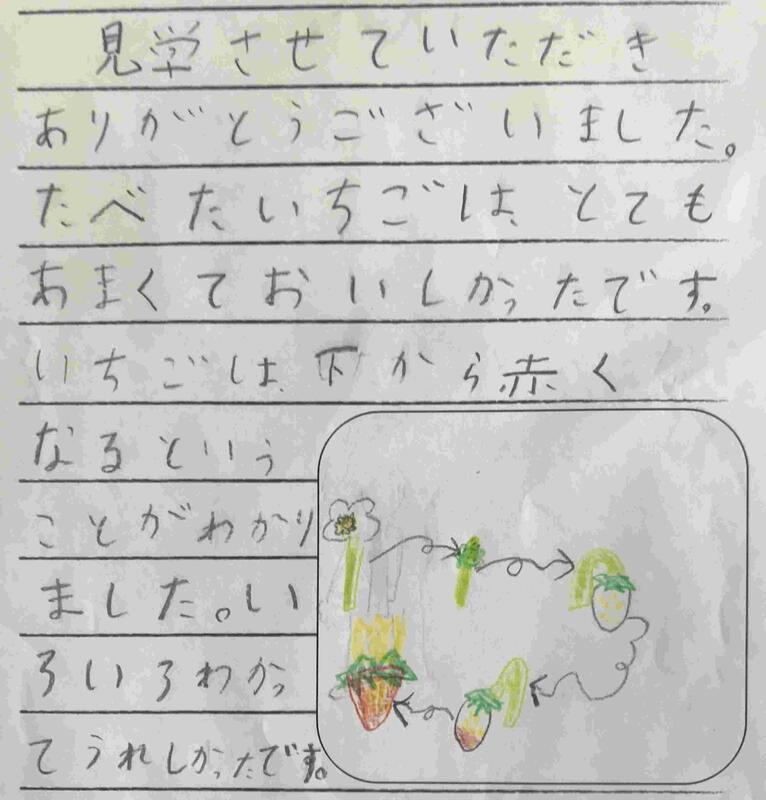 見学させていただき
ありがとうございました。
たべたいちごは、とても
あまくておいしかったです。
いちごは、下から赤く
なるという
ことがわかり
ました。い
ろいろわかっ
てうれしかったです。